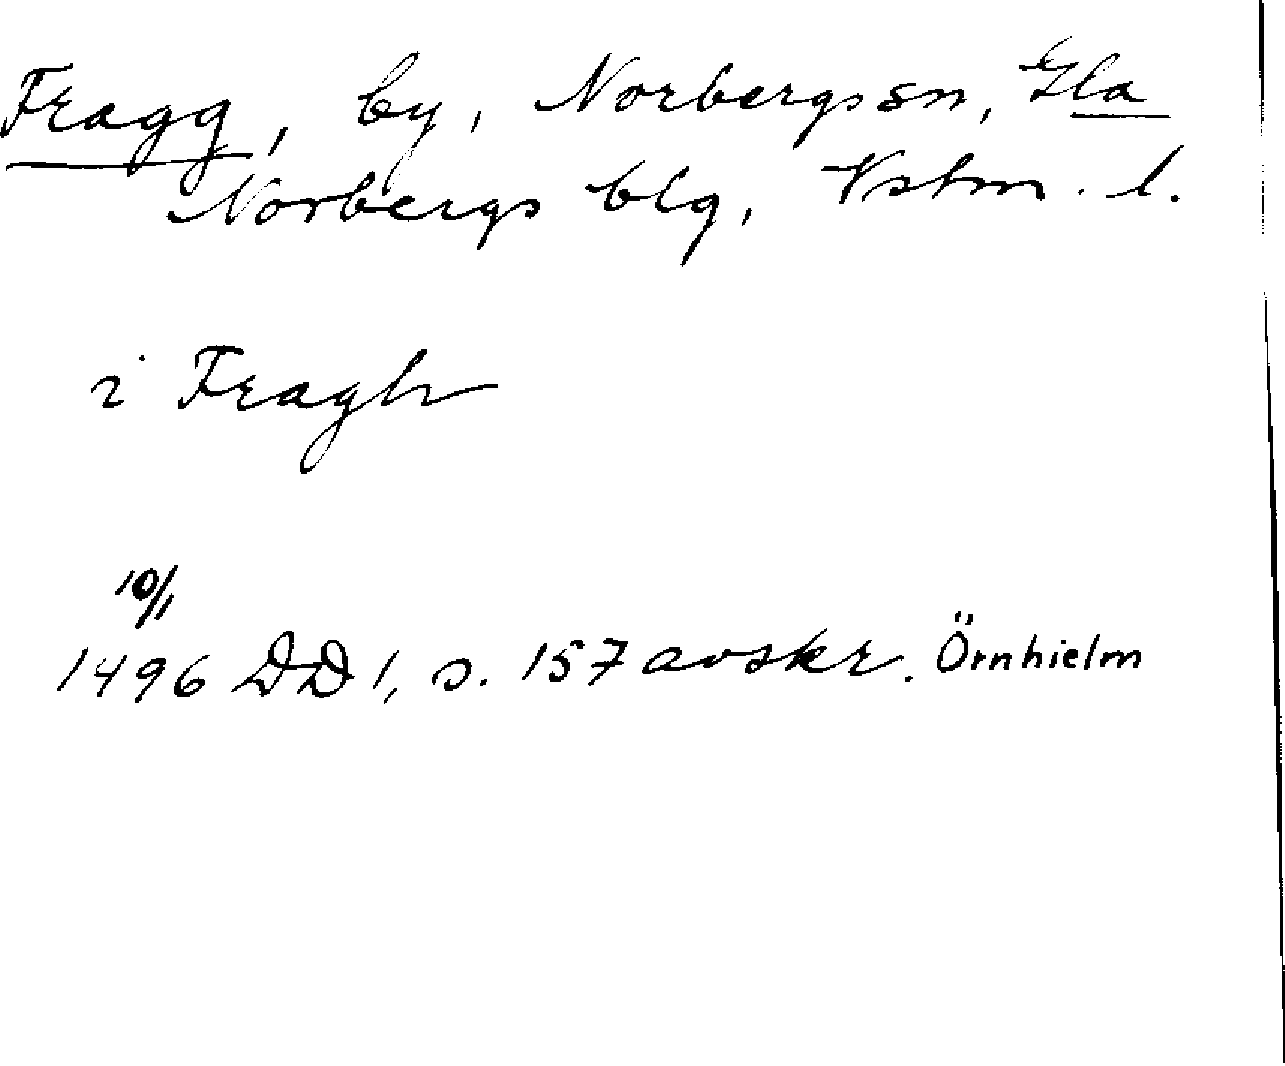 Fragg, by, Norbergs sn, Gla
Norbergs blg, Vstm. l.
i Fragh
10/1
1496 DD 1, s. 157 avskr. Örnhielm